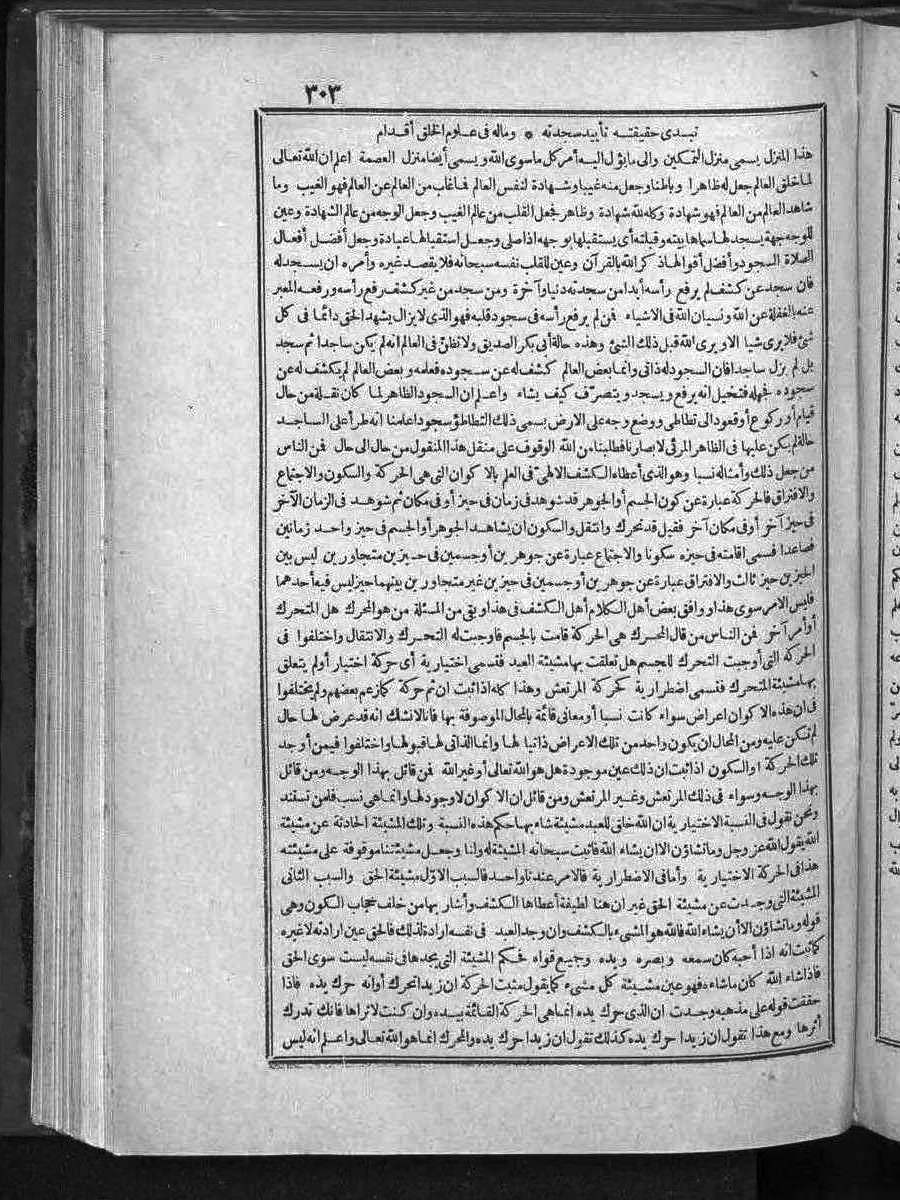 ٣٠٣
تبدى حقيقته تأييد سجدته * وماله فى علوم الخلق أقدام
هذا المنزل يسمى منزل التمكين والى ما يؤل اليه أمر كل ما سوى الله ويسمى أيضا منزل العصمة اعلم ان الله تعالى
لما خلق العالم جعل له ظاهرا وباطنا وجعل منه غيبا وشهادة لنفس العالم فما غاب من العالم عن العالم فهو الغيب وما
شاهد العالم من العالم فهو شهادة وكله لله شهادة وظاهر فجعل القلب من عالم الغيب وجعل الوجه من عالم الشهادة وعين
للوجه جهة يسجد لها سماها بيته وقبلته أى يستقبلها بوجهه اذا صلى وجعل استقبالها عبادة وجعل أفضل أفعال
الصلاة السجود وأفضل أقوالها ذكر الله بالقرآن وعين للقلب نفسه سبحانه فلا يقصد غيره وأمره ان يسجد له
فان سجد عن كشف لم يرفع رأسه أبدا من سجدته دنيا وآخرة ومن سجد من غير كشف رفع رأسه ورفعه المعبر
عنه بالغفلة عن الله ونسيان الله فى الاشياء فمن لم يرفع رأسه فى سجود قلبه فهو الذى لا يزال يشهد الحق دائما فى كل
شئ فلا يرى شيا الا ويرى الله قبل ذلك الشئ وهذه حالة أبى بكر الصديق ولا تظن فى العالم انه لم يكن ساجدا ثم سجد
بل لم يزل ساجدا فان السجود له ذاتى وانما بعض العالم كشف له عن سجوده فعلمه وبعض العالم لم يكشف له عن
سجوده فجهله فتخيل انه يرفع ويسجد ويتصرف كيف يشاء واعلم ان السجود الظاهر لما كان نقلة من حال
قيام أو ركوع أو قعود الى تطاطى ووضع وجه على الارض يسمى ذلك التطاطؤ سجودا علمنا انه طرأ على الساجد
حالة لم يكن عليها فى الظاهر المرئى لابصارنا فطلبنا من الله الوقوف على منقل هذا المنقول من حال الى حال فمن الناس
من جعل ذلك وأمثاله نسبا وهو الذى أعطاه الكشف الالهى فى العلم بالاكوان التى هى الحركة والسكون والاجتماع
والافتراق فالحركة عبارة عن كون الجسم أو الجوهر قد شوهد فى زمان فى حيز أو فى مكان ثم شوهد فى الزمان الآخر
فى حيز آخر أو فى مكان آخر فقيل قد تحرك وانتقل والسكون ان يشاهد الجوهر أو الجسم فى حيز واحد زمانين
فصاعدا فسمى اقامته فى حيزه سكونا والاجتماع عبارة عن جوهرين أو جسمين فى حيزين متجاورين ليس بين
الحيزين حيز ثالث والافتراق عبارة عن جوهرين أو جسمين فى حيزين غير متجاورين بينهما حيز ليس فيه أحدهما
فليس الامر سوى هذا ووافق بعض أهل الكلام أهل الكشف فى هذا وبقى من المسئلة من هو المحرك هل المتحرك
أو أمر آخر فمن الناس من قال المحرك هى الحركة قامت بالجسم فاوجبت له التحرك والانتقال واختلفوا فى
الحركة التى أوجبت التحرك للجسم هل تعلقت بها مشيئة العبد فتسمى اختيارية أى حركة اختيار أو لم يتعلق
بها مشيئة المتحرك فتسمى اضطرارية كحركة المرتعش وهذا كله اذا ثبت ان ثم حركة كما زعم بعضهم ولم يختلفوا
فى ان هذه الاكوان اعراض سواء كانت نسبا أو معانى قائمة بالمحال الموصوفة بها فانا لا نشك انه قد عرض لها حال
لم تكن عليه ومن المحال ان يكون واحد من تلك الاعراض ذاتيا لها وانما الذاتى لها قبولها واختلفوا فيمن أوجد
تلك الحركة او السكون اذا ثبت ان ذلك عين موجودة هل هو الله تعالى أو غير الله فمن قائل بهذا الوجه ومن قائل
بهذا الوجه وسواء فى ذلك المرتعش وغير المرتعش ومن قائل ان الاكوان لا وجود لها وانما هى نسب فلمن تستند
ونحن نقول فى النسبة الاختيارية ان الله خلق للعبد مشيئة شاء بها حكم هذه النسبة وتلك المشيئة الحادثة عن مشيئة
الله يقول الله عز وجل وما تشاؤن الا ان يشاء الله فاثبت سبحانه المشيئة له ولنا وجعل مشيئتنا موقوفة على مشيئته
هذا فى الحركة الاختيارية وأما فى الاضطرارية فالامر عندنا واحد فالسبب الاول مشيئة الحق والسبب الثانى
المشيئة التى وجدت عن مشيئة الحق غير ان هنا لطيفة أعطاها الكشف وأشار بها من خلف حجاب الكون وهى
قوله وما تشاؤن الا أن يشاء الله فالله هو المشىء بالكشف وان وجد العبد فى نفسه ارادة لذلك فالحق عين ارادته لا غيره
كما ثبت انه اذا أحبه كان سمعه وبصره ويده وجميع قواه فحكم المشيئة التى يجدها فى نفسه ليست سوى الحق
فاذا شاء الله كان ما شاءه فهو عين مشيئة كل مشىء كما يقول مثبت الحركة ان زيدا تحرك أو انه حرك يده فاذا
حققت قوله على مذهبه وجدت ان الذى حرك يده انما هى الحركة القائمة بيده وان كنت لا تراها فانك تدرك
أثرها ومع هذا تقول ان زيدا حرك يده كذلك تقول ان زيدا حرك يده والمحرك انما هو الله تعالى واعلم انه ليس